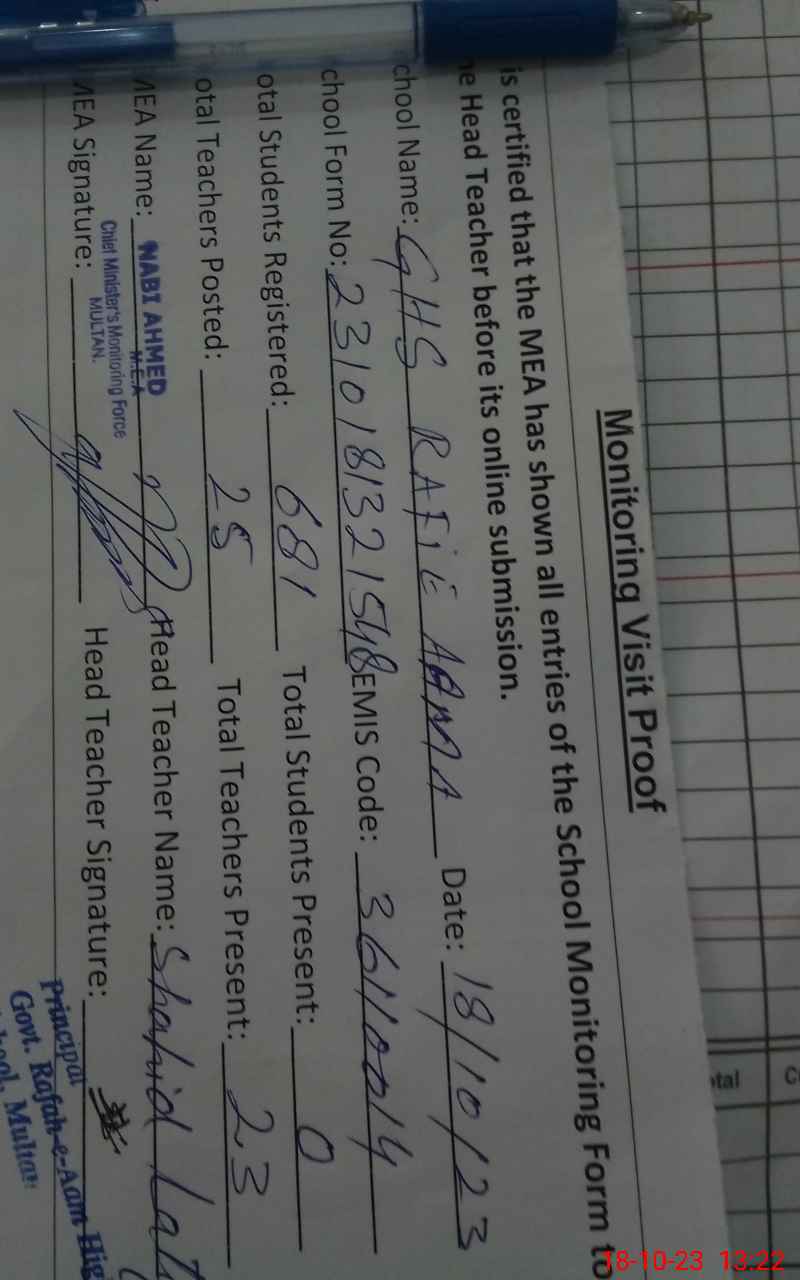 Monitoring Visit Proof
is certified that the MEA has shown all entries of the School Monitoring Form to
he Head Teacher before its online submission.
chool Name: GHS Date: 18/10/23
chool Form No: 2310181321548 EMIS Code: 36110014
otal Students Registered: 681 Total Students Present: 0
otal Teachers Posted: 25 Total Teachers Present: 23
MEA Name: NABI AHMED Head Teacher Name: Shahid
M.E.A
Chief Minister's Monitoring Force
MULTAN.
MEA Signature: Head Teacher Signature:
Principal
Govt. Rafah-e-Aam Hig
hool, Multan
tal
18-10-23 13:22